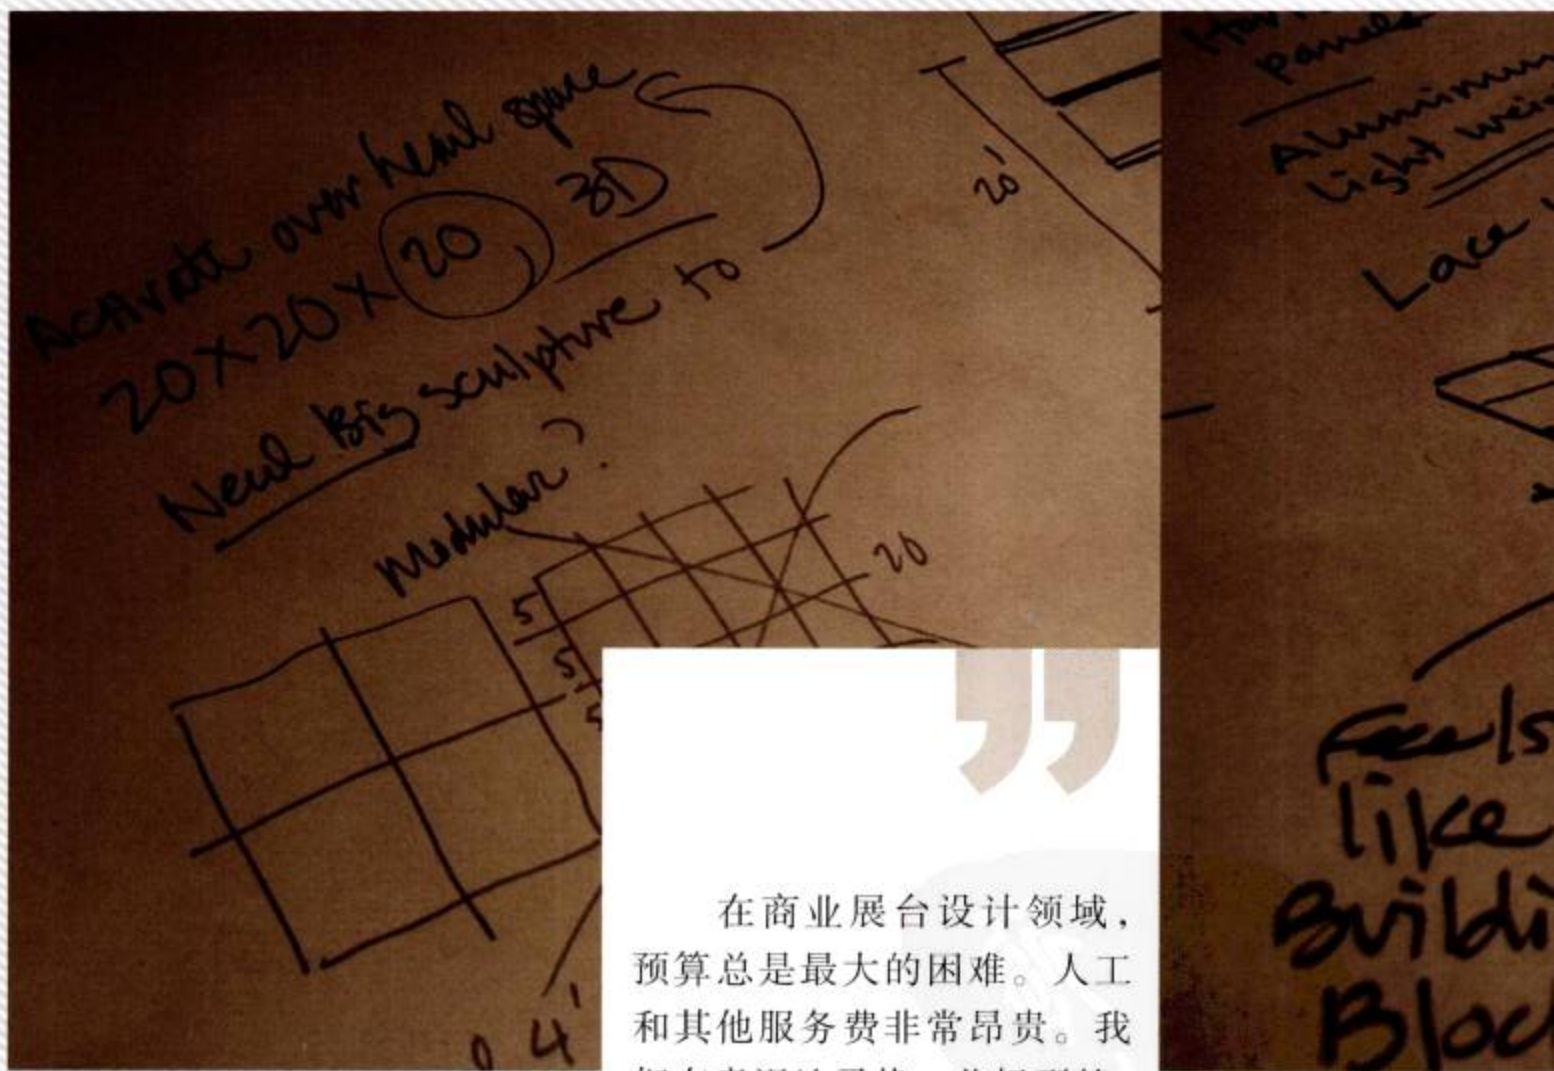 Activate over head space
20 X 20 X 20, 3D
Need Big sculpture to
Modular?
20'
20
5
5
5
4'
panels
Aluminum
Light
Lace
Feels
like
在商业展台设计领域，
预算总是最大的困难。人工
和其他服务费非常昂贵。我